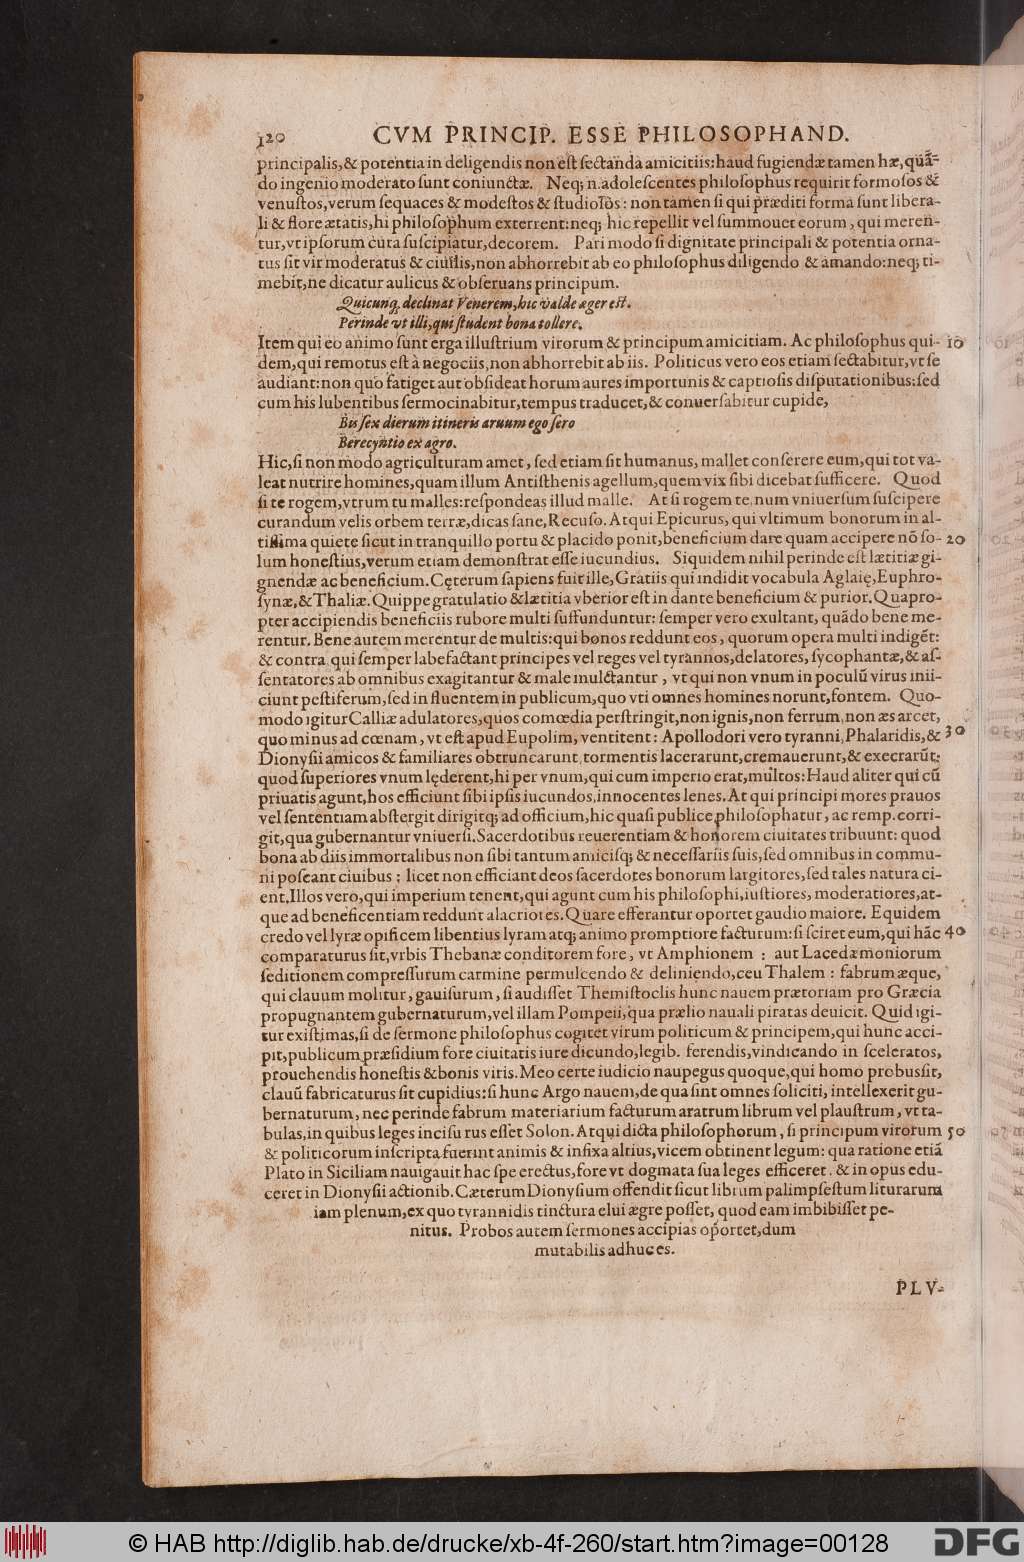 120 CVM PRINCIP. ESSE PHILOSOPHAND.
principalis,& potentia in deligendis non est sectanda amicitiis:haud fugiendæ tamen hæ,quã-
do ingenio moderato sunt coniunctæ. Neq; n. adolescentes philosophus requirit formosos &
venustos,verum sequaces & modestos & studiosos: non tamen si qui præditi forma sunt libera-
li & flore ætatis,hi philosophum exterrent:neq; hic repellit vel summouet eorum, qui meren-
tur,vt ipsorum cura suscipiatur,decorem. Pari modo si dignitate principali & potentia orna-
tus sit vir moderatus & ciuilis,non abhorrebit ab eo philosophus diligendo & amando:neq; ti-
mebit,ne dicatur aulicus & obseruans principum.
Quicunq; declinat Venerem,hic valde æger est.
Perinde vt illi,qui student bona tollere.
Item qui eo animo sunt erga illustrium virorum & principum amicitiam. Ac philosophus qui- 10
dem,qui remotus est à negociis,non abhorrebit ab iis. Politicus vero eos etiam sectabitur,vt se
audiant:non quo fatiget aut obsideat horum aures importunis & captiosis disputationibus:sed
cum his lubentibus sermocinabitur,tempus traducet,& conuersabitur cupide,
Bis sex dierum itineris aruum ego sero
Berecyntio ex agro.
Hic,si non modo agriculturam amet, sed etiam sit humanus, mallet conserere eum,qui tot va-
leat nutrire homines,quam illum Antisthenis agellum,quem vix sibi dicebat sufficere. Quod
si te rogem,vtrum tu malles:respondeas illud malle. At si rogem te num vniuersum suscipere
curandum velis orbem terræ,dicas sane,Recuso. Atqui Epicurus, qui vltimum bonorum in al-
tissima quiete sicut in tranquillo portu & placido ponit,beneficium dare quam accipere nõ so- 20
lum honestius,verum etiam demonstrat esse iucundius. Siquidem nihil perinde est lætitiæ gi-
gnendæ ac beneficium. Cęterum sapiens fuit ille,Gratiis qui indidit vocabula Aglaię,Euphro-
synæ,& Thaliæ. Quippe gratulatio & lætitia vberior est in dante beneficium & purior. Quapro-
pter accipiendis beneficiis rubore multi suffunduntur: semper vero exultant, quãdo bene me-
rentur. Bene autem merentur de multis:qui bonos reddunt eos, quorum opera multi indigẽt:
& contra qui semper labefactant principes vel reges vel tyrannos,delatores, sycophantæ,& as-
sentatores ab omnibus exagitantur & male mulctantur, vt qui non vnum in poculũ virus inii-
ciunt pestiferum,sed in fluentem in publicum,quo vti omnes homines norunt,fontem. Quo-
modo igitur Calliæ adulatores,quos comœdia perstringit,non ignis,non ferrum non æs arcet,
quo minus ad cœnam, vt est apud Eupolim, ventitent: Apollodori vero tyranni, Phalaridis,& 30
Dionysii amicos & familiares obtruncarunt tormentis lacerarunt,cremauerunt,& execrarũt:
quod superiores vnum lęderent,hi per vnum,qui cum imperio erat,multos:Haud aliter qui cũ
priuatis agunt,hos efficiunt sibi ipsis iucundos,innocentes lenes. At qui principi mores prauos
vel sententiam abstergit dirigitq; ad officium,hic quasi publice philosophatur, ac remp. corri-
git,qua gubernantur vniuersi. Sacerdotibus reuerentiam & honorem ciuitates tribuunt: quod
bona ab diis immortalibus non sibi tantum amicisq; & necessariis suis,sed omnibus in commu-
ni poscant ciuibus: licet non efficiant deos sacerdotes bonorum largitores,sed tales natura ci-
ent. Illos vero,qui imperium tenent,qui agunt cum his philosophi,iustiores, moderatiores,at-
que ad beneficentiam reddunt alacriores. Quare efferantur oportet gaudio maiore. Equidem
credo vel lyræ opificem libentius lyram atq; animo promptiore facturum:si sciret eum,qui hãc 40
comparaturus sit,vrbis Thebanæ conditorem fore, vt Amphionem: aut Lacedæmoniorum
seditionem compressurum carmine permulcendo & deliniendo,ceu Thalem: fabrum æque,
qui clauum molitur, gauisurum, si audisset Themistoclis hunc nauem prætoriam pro Græcia
propugnantem gubernaturum,vel illam Pompeii,qua prælio nauali piratas deuicit. Quid igi-
tur existimas,si de sermone philosophus cogitet virum politicum & principem,qui hunc acci-
pit,publicum præsidium fore ciuitatis iure dicundo,legib. ferendis,vindicando in sceleratos,
prouehendis honestis & bonis viris. Meo certe iudicio naupegus quoque,qui homo probus sit,
clauũ fabricaturus sit cupidius:si hunc Argo nauem,de qua sint omnes soliciti, intellexerit gu-
bernaturum, nec perinde fabrum materiarium facturum aratrum librum vel plaustrum, vt ta-
bulas,in quibus leges incisurus esset Solon. Atqui dicta philosophorum, si principum virorum 50
& politicorum inscripta fuerint animis & infixa altius,vicem obtinent legum: qua ratione etiã
Plato in Siciliam nauigauit hac spe erectus,fore vt dogmata sua leges efficeret. & in opus edu-
ceret in Dionysii actionib. Cæterum Dionysium offendit sicut librum palimpsestum liturarum
iam plenum,ex quo tyrannidis tinctura elui ægre posset, quod eam imbibisset pe-
nitus. Probos autem sermones accipias oportet,dum
mutabilis adhuc es.
PLV-
© HAB http://diglib.hab.de/drucke/xb-4f-260/start.htm?image=00128
DFG